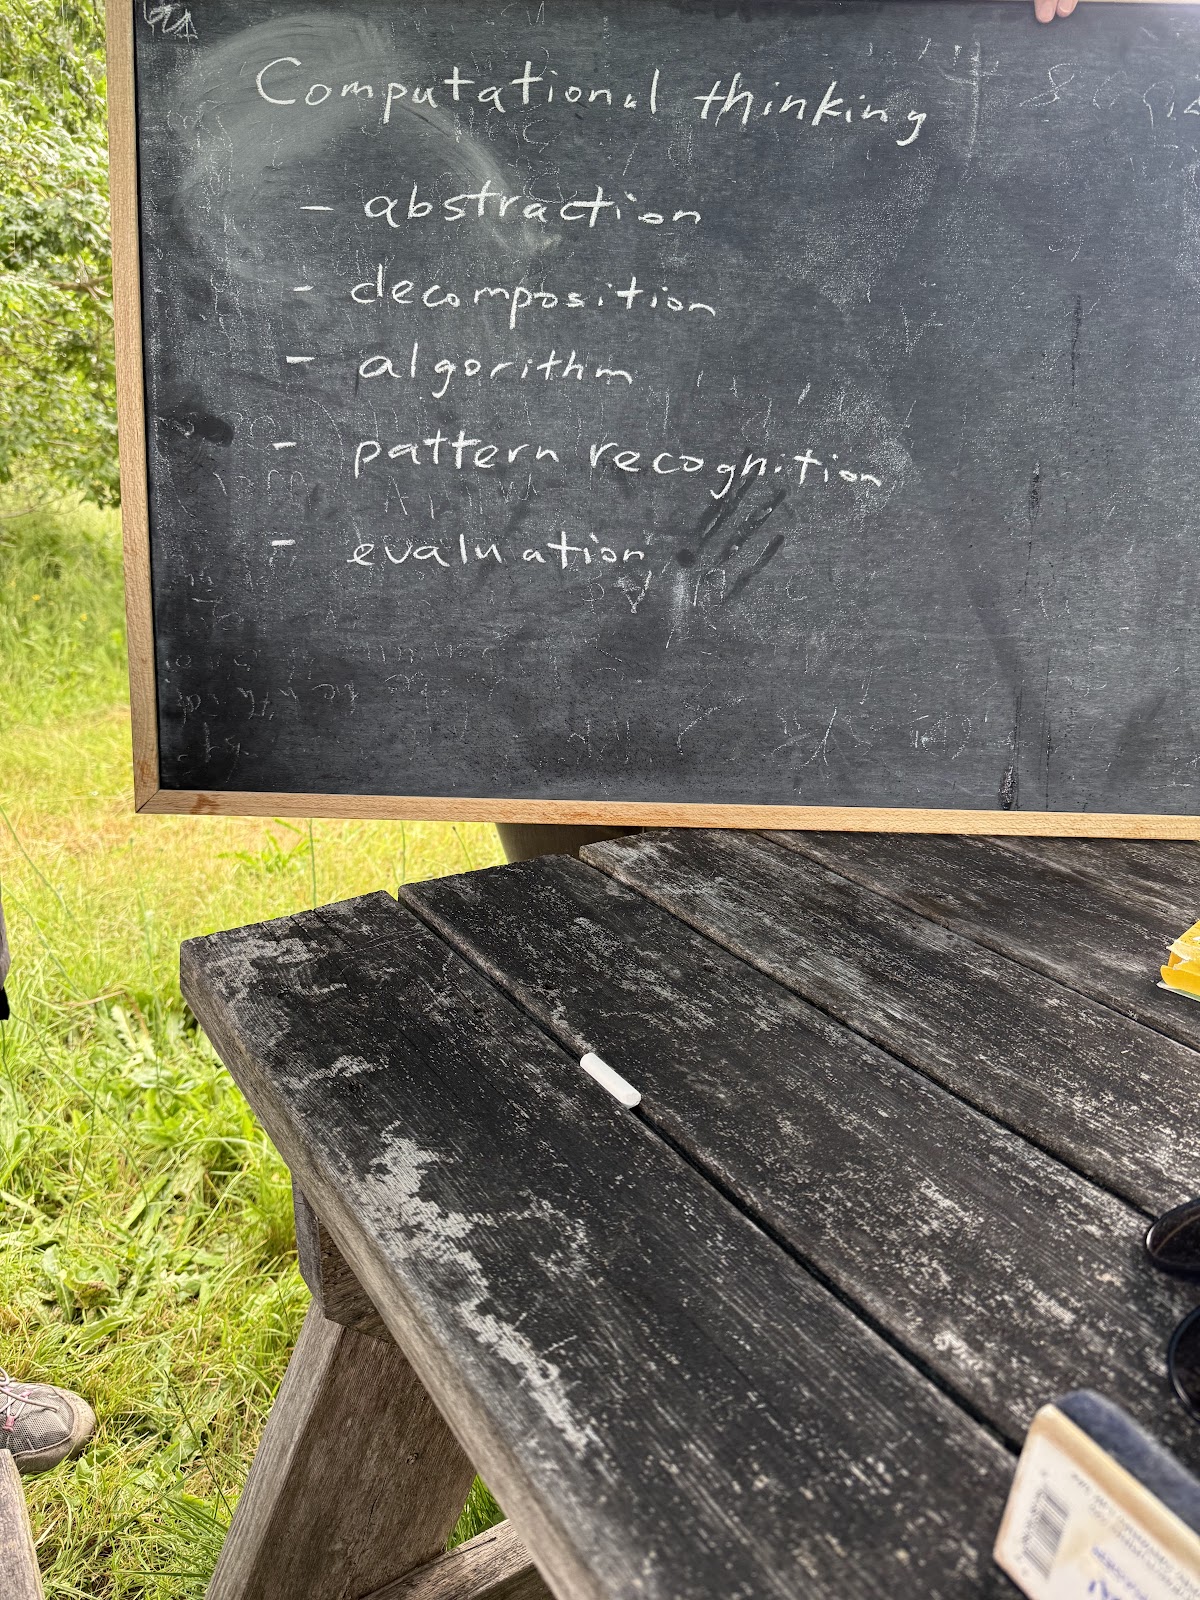 Computational thinking
- abstraction
- decomposition
- algorithm
- pattern recognition
- evaluation